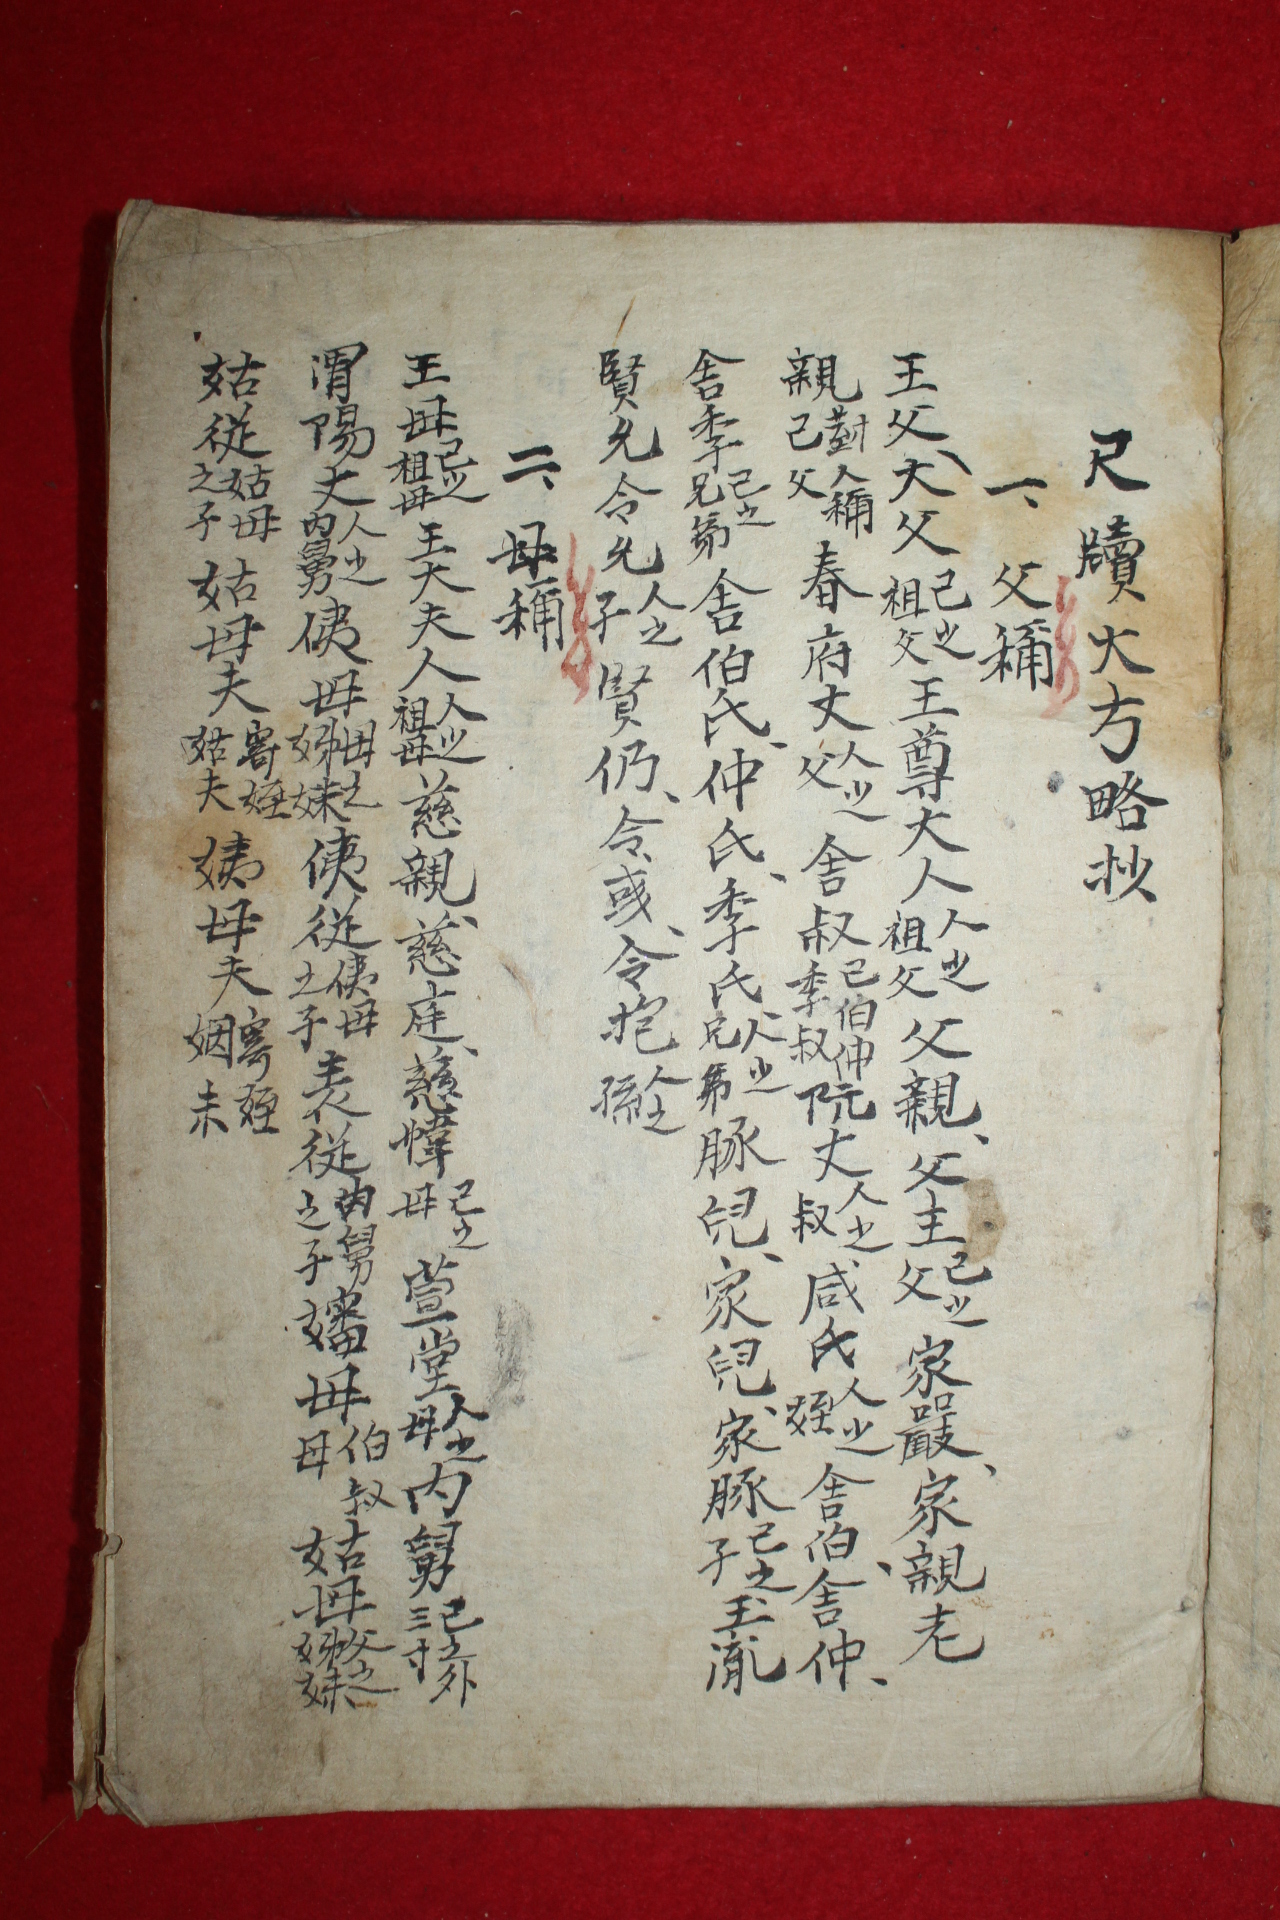 尺牘大方略抄
一、父稱
王父、大父己之祖父王尊大人人之祖父父親、父主己之父家嚴、家親老
親對人稱己父春府丈人之父舍叔季叔己伯仲阮丈人之叔咸氏人之姪舍伯、舍仲、
舍季己之兄弟舍伯氏、仲氏、季氏人之兄弟豚兒、家兒、家豚己之子玉胤
賢允令允人之子賢仍、令彧、令抱人之孫
二、母稱
王母己之祖母王大夫人人之祖母慈親、慈庭、慈幃己之母萱堂人之母內舅己之外三寸
渭陽丈人之內舅侇母母之姊妹侇從侇母之子表從內舅之子嬸母伯叔母姑母父之姊妹
姑從姑母之子姑母夫寄姪姑夫姨母夫寄姪姻末